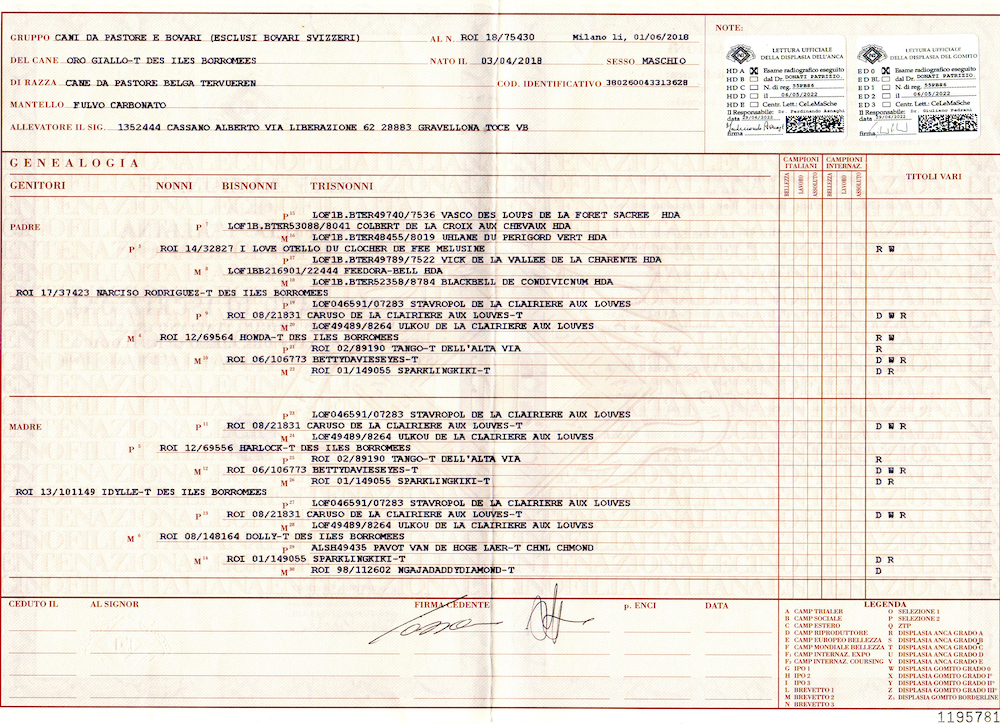 GRUPPO CANI DA PASTORE E BOVARI (ESCLUSI BOVARI SVIZZERI) AL N. ROI 18/75430 Milano li, 01/06/2018
DEL CANE ORO GIALLO-T DES ILES BORROMEES NATO IL 03/04/2018 SESSO MASCHIO
DI RAZZA CANE DA PASTORE BELGA TERVUEREN COD. IDENTIFICATIVO 380260043313628
MANTELLO FULVO CARBONATO
ALLEVATORE IL SIG. 1352444 CASSANO ALBERTO VIA LIBERAZIONE 62 28883 GRAVELLONA TOCE VB
NOTE:
LETTURA UFFICIALE
DELLA DISPLASIA DELL'ANCA
HD A X Esame radiografico eseguito
HD B dal Dr. DONATI PATRIZIO
HD C N. di reg. 55PB86
HD D il 06/05/2022
HD E Centr. Lett.: CeLeMaSche
Il Responsabile: Dr. Ferdinando Asnaghi
data 29/06/2022
firma
LETTURA UFFICIALE
DELLA DISPLASIA DEL GOMITO
ED 0 X Esame radiografico eseguito
ED BL dal Dr. DONATI PATRIZIO
ED 1 N. di reg. 55PB86
ED 2 il 06/05/2022
ED 3 Centr. Lett.: CeLeMaSche
Il Responsabile: Dr. Giuliano Pedrani
data 29/06/2022
firma
GENEALOGIA
GENITORI NONNI BISNONNI TRISNONNI
CAMPIONI ITALIANI CAMPIONI INTERNAZ. TITOLI VARI
BELLEZZA LAVORO ASSOLUTO BELLEZZA LAVORO ASSOLUTO
P 15 LOF1B.BTER49740/7536 VASCO DES LOUPS DE LA FORET SACREE HDA
PADRE P 7 LOF1B.BTER53088/8041 COLBERT DE LA CROIX AUX CHEVAUX HDA
M 16 LOF1B.BTER48455/8019 UHLANE DU PERIGORD VERT HDA
P 3 ROI 14/32827 I LOVE OTELLO DU CLOCHER DE FEE MELUSINE R W
P 17 LOF1B.BTER49789/7522 VICK DE LA VALLEE DE LA CHARENTE HDA
M 8 LOF1BB216901/22444 FEEDORA-BELL HDA
M 18 LOF1B.BTER52358/8784 BLACKBELL DE CONDIVICNUM HDA
ROI 17/37423 NARCISO RODRIGUEZ-T DES ILES BORROMEES
P 19 LOF046591/07283 STAVROPOL DE LA CLAIRIERE AUX LOUVES
P 9 ROI 08/21831 CARUSO DE LA CLAIRIERE AUX LOUVES-T D W R
M 20 LOF49489/8264 ULKOU DE LA CLAIRIERE AUX LOUVES
M 4 ROI 12/69564 HONDA-T DES ILES BORROMEES R W
P 21 ROI 02/89190 TANGO-T DELL'ALTA VIA R
M 10 ROI 06/106773 BETTYDAVIESEYES-T D W R
M 22 ROI 01/149055 SPARKLINGKIKI-T D R
P 23 LOF046591/07283 STAVROPOL DE LA CLAIRIERE AUX LOUVES
MADRE P 11 ROI 08/21831 CARUSO DE LA CLAIRIERE AUX LOUVES-T D W R
M 24 LOF49489/8264 ULKOU DE LA CLAIRIERE AUX LOUVES
P 5 ROI 12/69556 HARLOCK-T DES ILES BORROMEES
P 25 ROI 02/89190 TANGO-T DELL'ALTA VIA R
M 12 ROI 06/106773 BETTYDAVIESEYES-T D W R
M 26 ROI 01/149055 SPARKLINGKIKI-T D R
ROI 13/101149 IDYLLE-T DES ILES BORROMEES
P 27 LOF046591/07283 STAVROPOL DE LA CLAIRIERE AUX LOUVES
P 13 ROI 08/21831 CARUSO DE LA CLAIRIERE AUX LOUVES-T D W R
M 28 LOF49489/8264 ULKOU DE LA CLAIRIERE AUX LOUVES
M 6 ROI 08/148164 DOLLY-T DES ILES BORROMEES
P 29 ALSH49435 PAVOT VAN DE HOGE LAER-T CHNL CHMOND
M 14 ROI 01/149055 SPARKLINGKIKI-T D R
M 30 ROI 98/112602 NGAJADADDYDIAMOND-T D
CEDUTO IL AL SIGNOR FIRMA CEDENTE p. ENCI DATA
LEGENDA
A CAMP TRIALER O SELEZIONE 1
B CAMP SOCIALE P SELEZIONE 2
C CAMP ESTERO Q ZTP
D CAMP RIPRODUTTORE R DISPLASIA ANCA GRADO A
E CAMP EUROPEO BELLEZZA S DISPLASIA ANCA GRADO B
F CAMP MONDIALE BELLEZZA T DISPLASIA ANCA GRADO C
F1 CAMP INTERNAZ. EXPO U DISPLASIA ANCA GRADO D
F2 CAMP INTERNAZ. COURSING V DISPLASIA ANCA GRADO E
G IPO 1 W DISPLASIA GOMITO GRADO 0
H IPO 2 X DISPLASIA GOMITO GRADO I°
I IPO 3 Y DISPLASIA GOMITO GRADO II°
L BREVETTO 1 Z DISPLASIA GOMITO GRADO III°
M BREVETTO 2 Z1 DISPLASIA GOMITO BORDERLINE
N BREVETTO 3
1195781